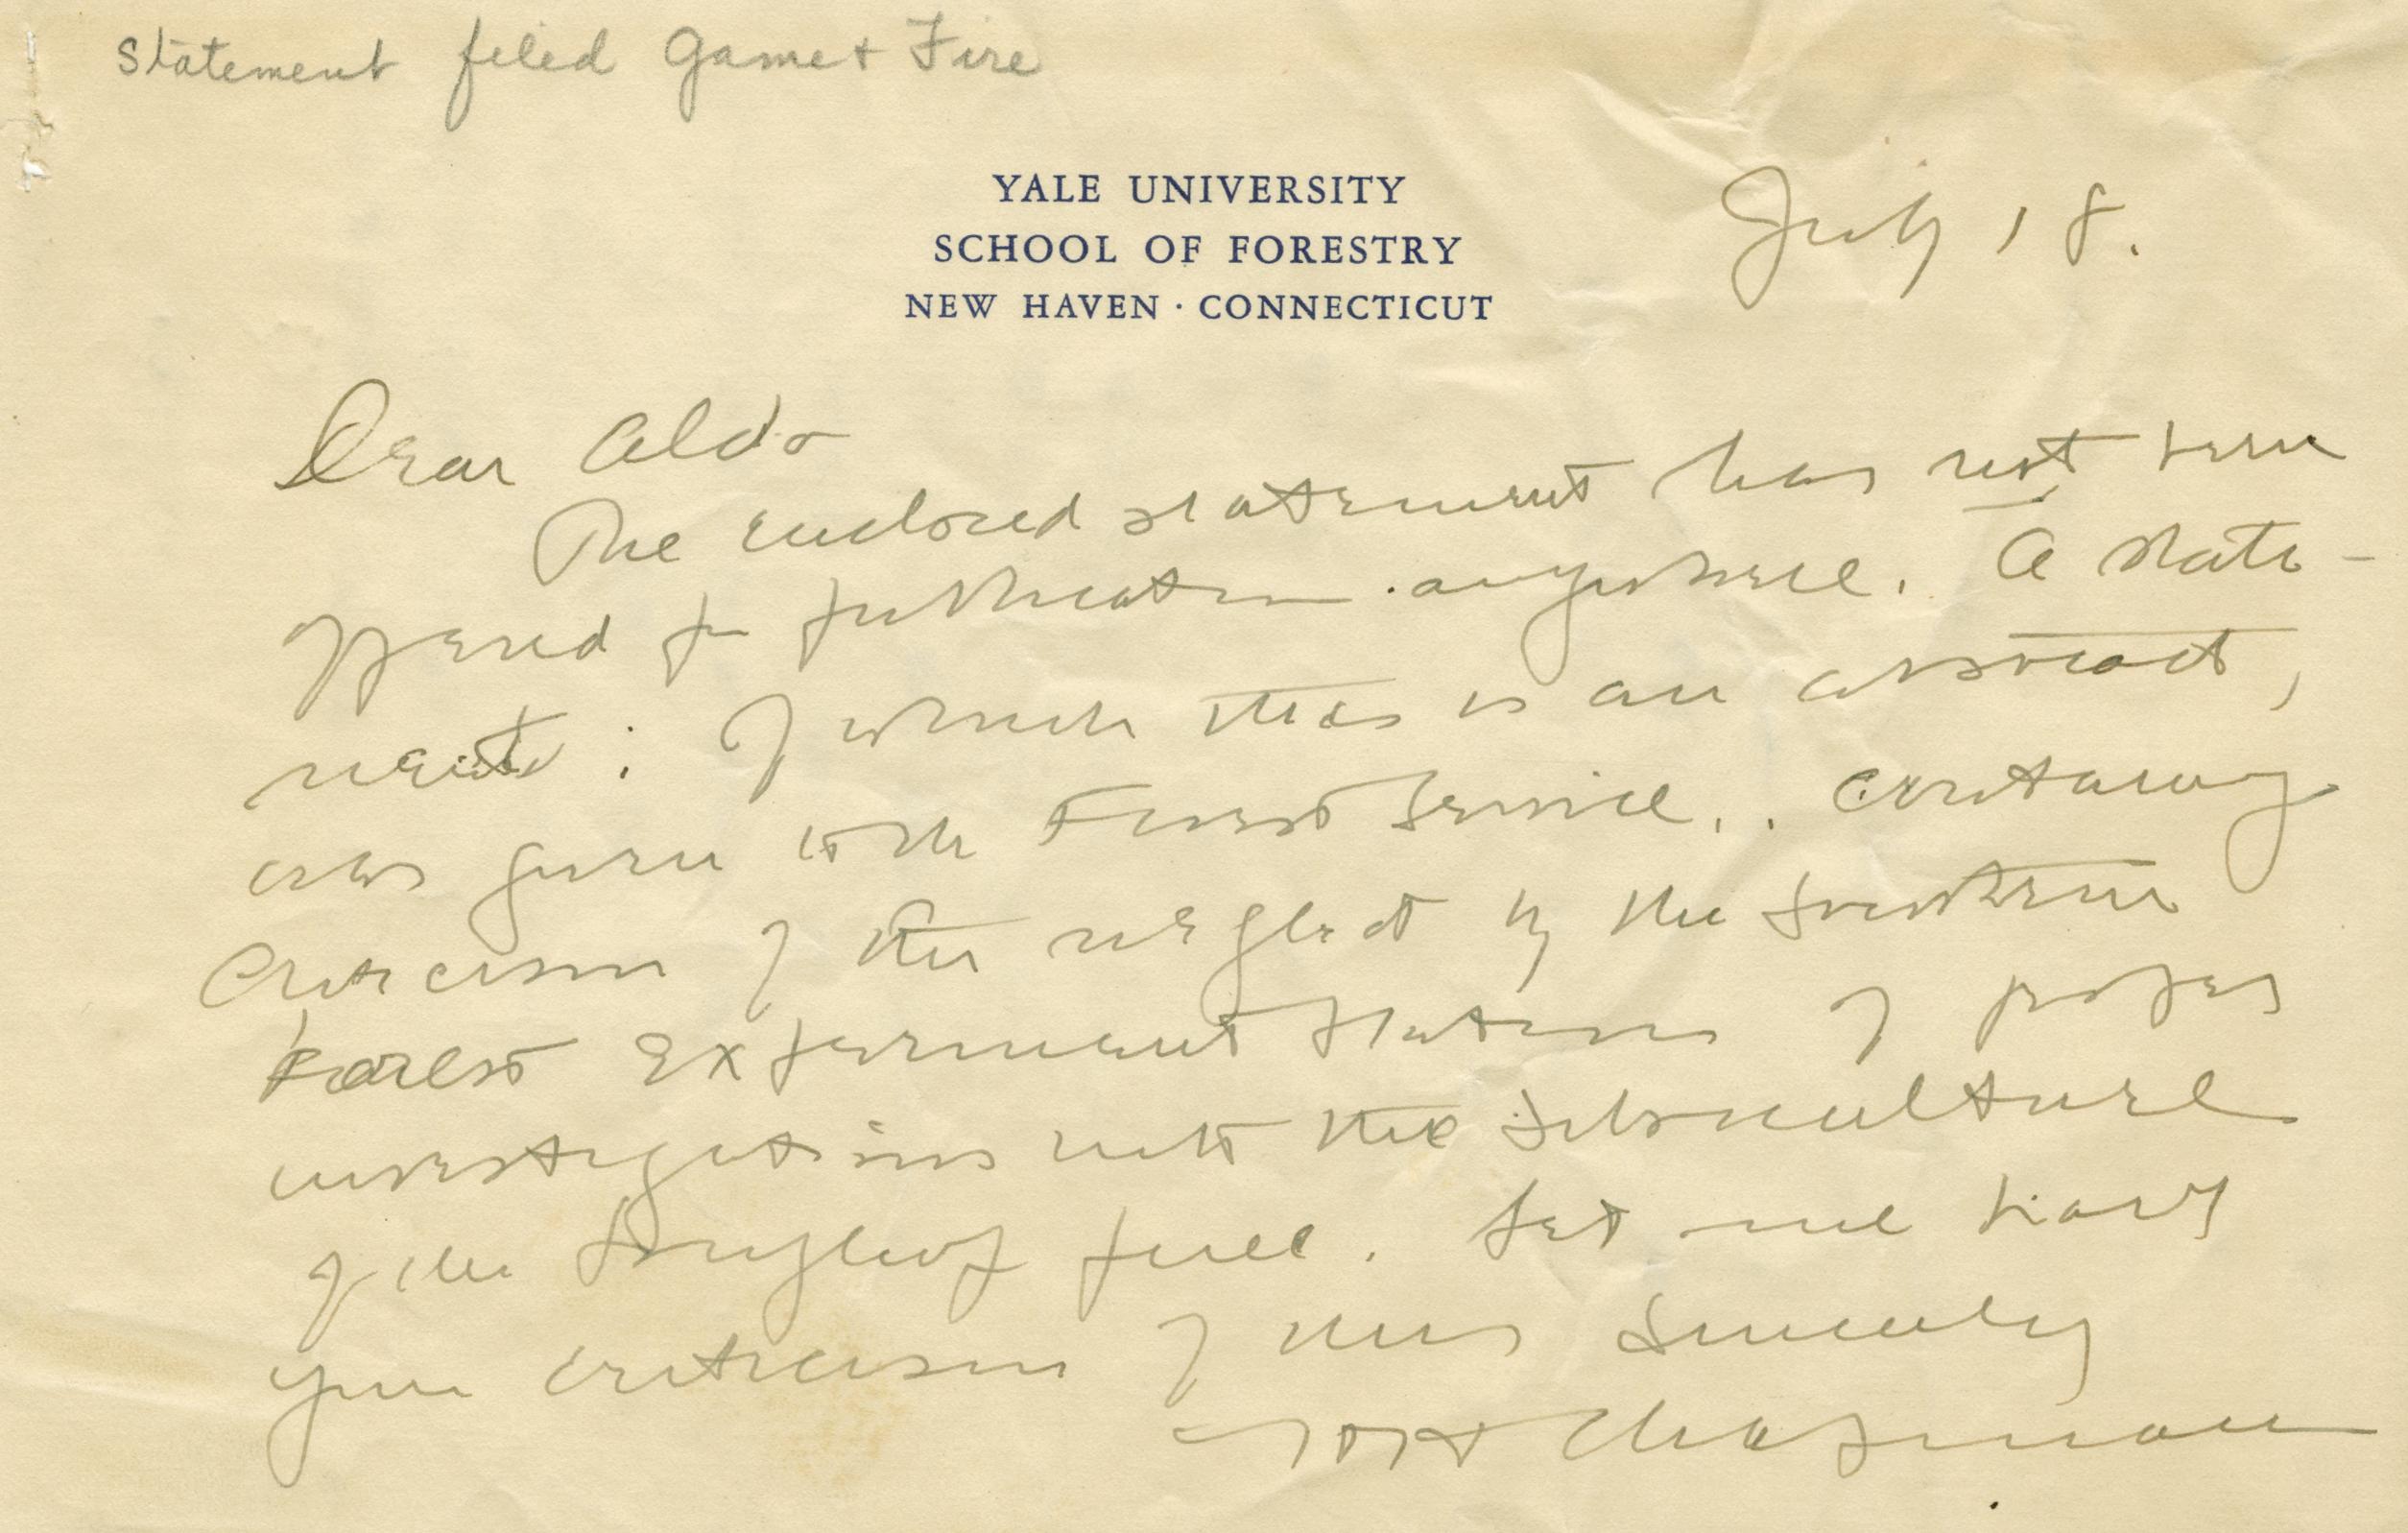 Statement filed Game + Fire
YALE UNIVERSITY
SCHOOL OF FORESTRY
NEW HAVEN · CONNECTICUT
July 18.
Dear Aldo
The enclosed statement has not been
offered for publication anywhere. A state-
ment of which this is an abstract,
was given to the Forest Service, containing
Criticism of the neglect by the Southern
Forest Experiment Station of proper
investigations into the Silviculture
of the Longleaf pine. Let me have
your criticism of this Sincerely
HH Chapman